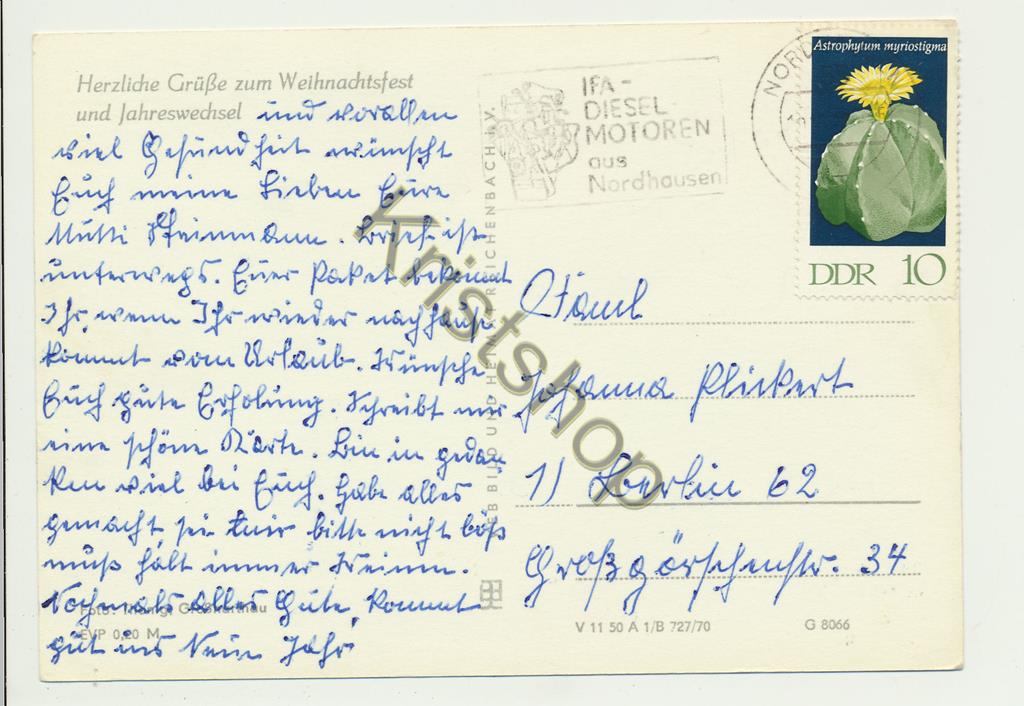 Herzliche Grüße zum Weihnachtsfest
und Jahreswechsel und vor allem
viel Gesundheit wünscht
Euch meine Lieben Eure
Mutti Steinmann. Brief ist
unterwegs. Euer Paket bekommt
Ihr, wenn Ihr wieder nachhause
kommt vom Urlaub. Wünsche
Euch gute Erholung. Schreibt mir
eine schöne Karte. Bin in gedan
ken viel bei Euch. Habe alles
gemacht, sei mir bitte nicht böß
muß halt immer
Nochmals alles Gute, kommt
gut ins Neue Jahr
Foto: Großharthau
EVP 0,20 M
VEB BILD UND HEIMAT REICHENBACH i. V.
IFA-
DIESEL
MOTOREN
aus
Nordhausen
NORD
Astrophytum myriostigma
DDR 10
Faml
Johanna Rlickert
1) Berlin 62
Großgörschenstr. 34
V 11 50 A 1/B 727/70
G 8066
Kristshop